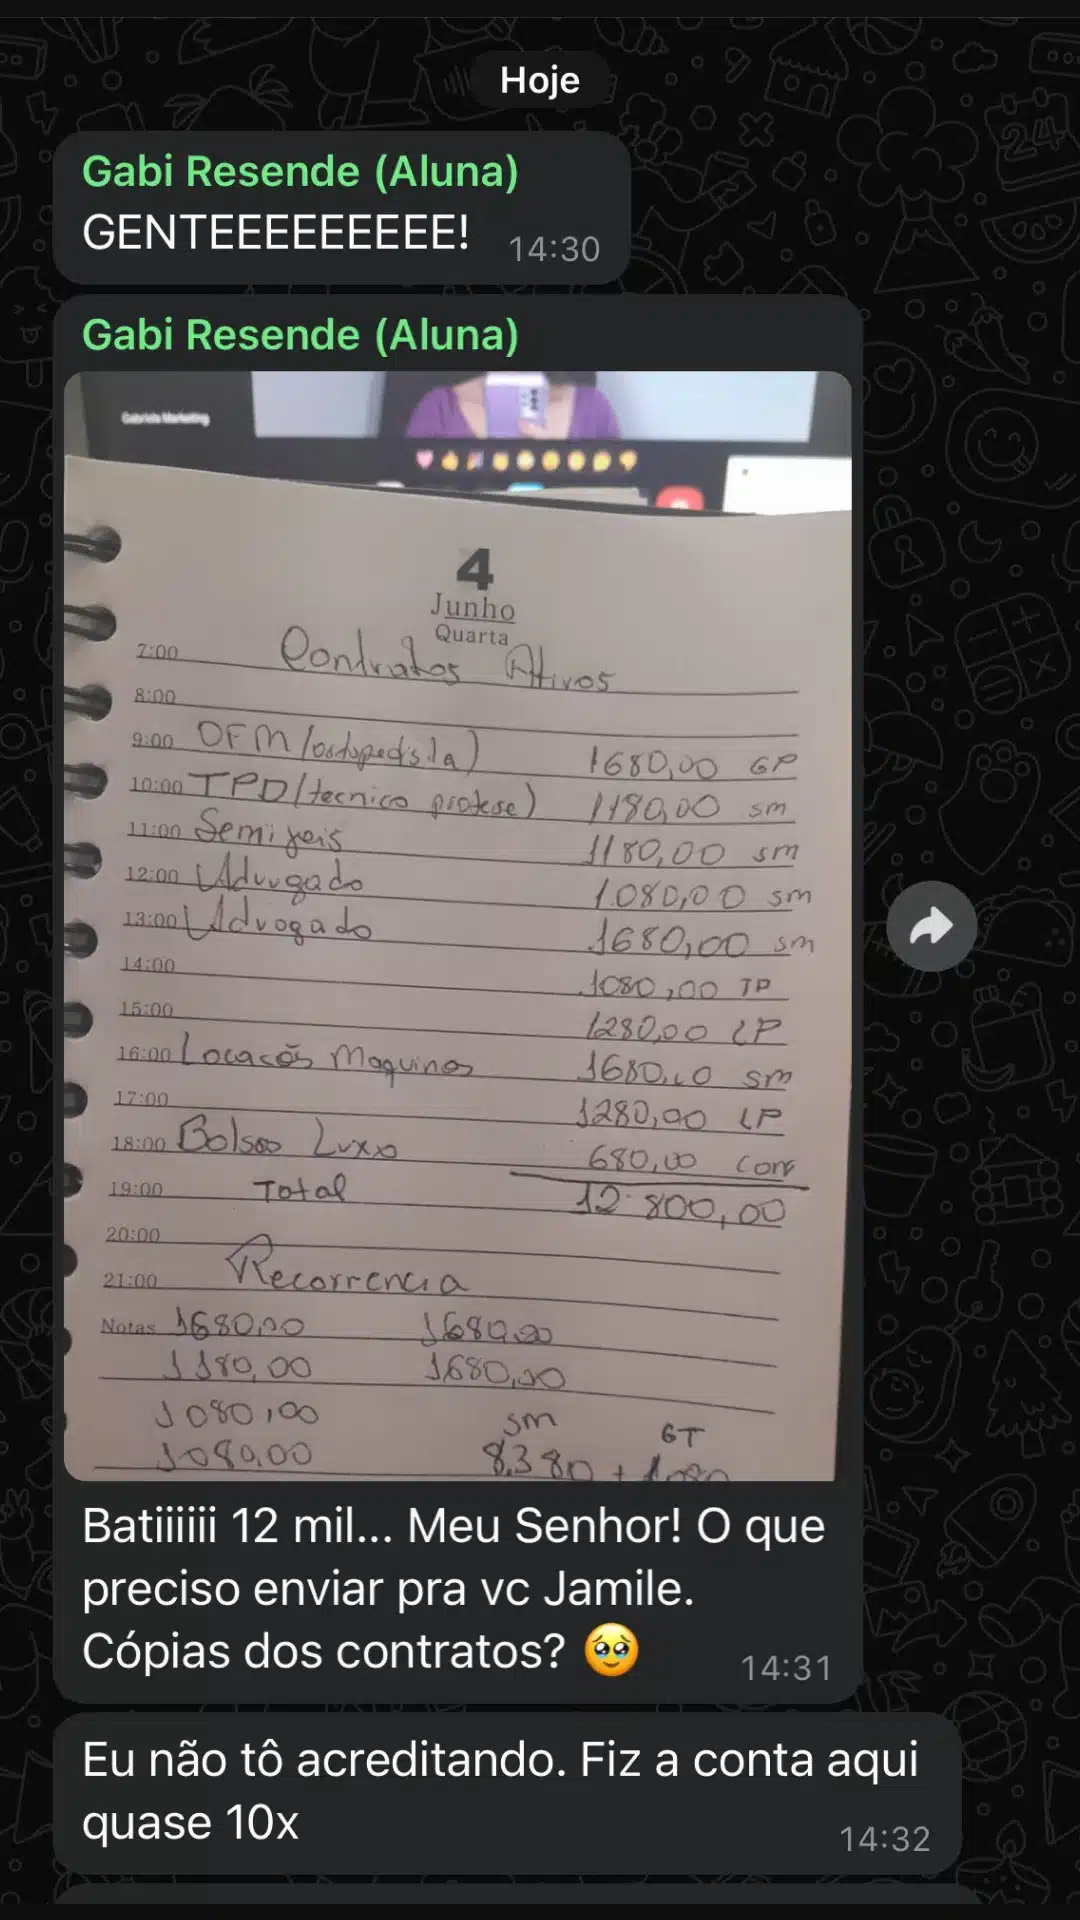 Hoje
Gabi Resende (Aluna)
GENTEEEEEEEEE!
14:30
Gabi Resende (Aluna)
Gabriela Marketing
4
Junho
Quarta
7:00 Contratos Ativos
8:00
9:00 OFM (ortopedista) 1680,00 GP
10:00 TPD (tecnico protese) 1180,00 sm
11:00 Semi jois 1180,00 sm
12:00 Advogado 1.080,00 sm
13:00 Advogado 1680,00 sm
14:00 1080,00 TP
15:00 1280,00 LP
16:00 Locacós Maquinas 1680,00 sm
17:00 1280,00 LP
18:00 Bolsas Luxo 680,00 Con
19:00 Total 12.800,00
20:00
21:00 Recorrencia
Notas 1680,00 1680,00
1180,00 1680,00
1080,00 sm GT
1080,00 8.380 + 1.080
Batiiiiii 12 mil... Meu Senhor! O que
preciso enviar pra vc Jamile.
Cópias dos contratos? 🥹
14:31
Eu não tô acreditando. Fiz a conta aqui
quase 10x
14:32